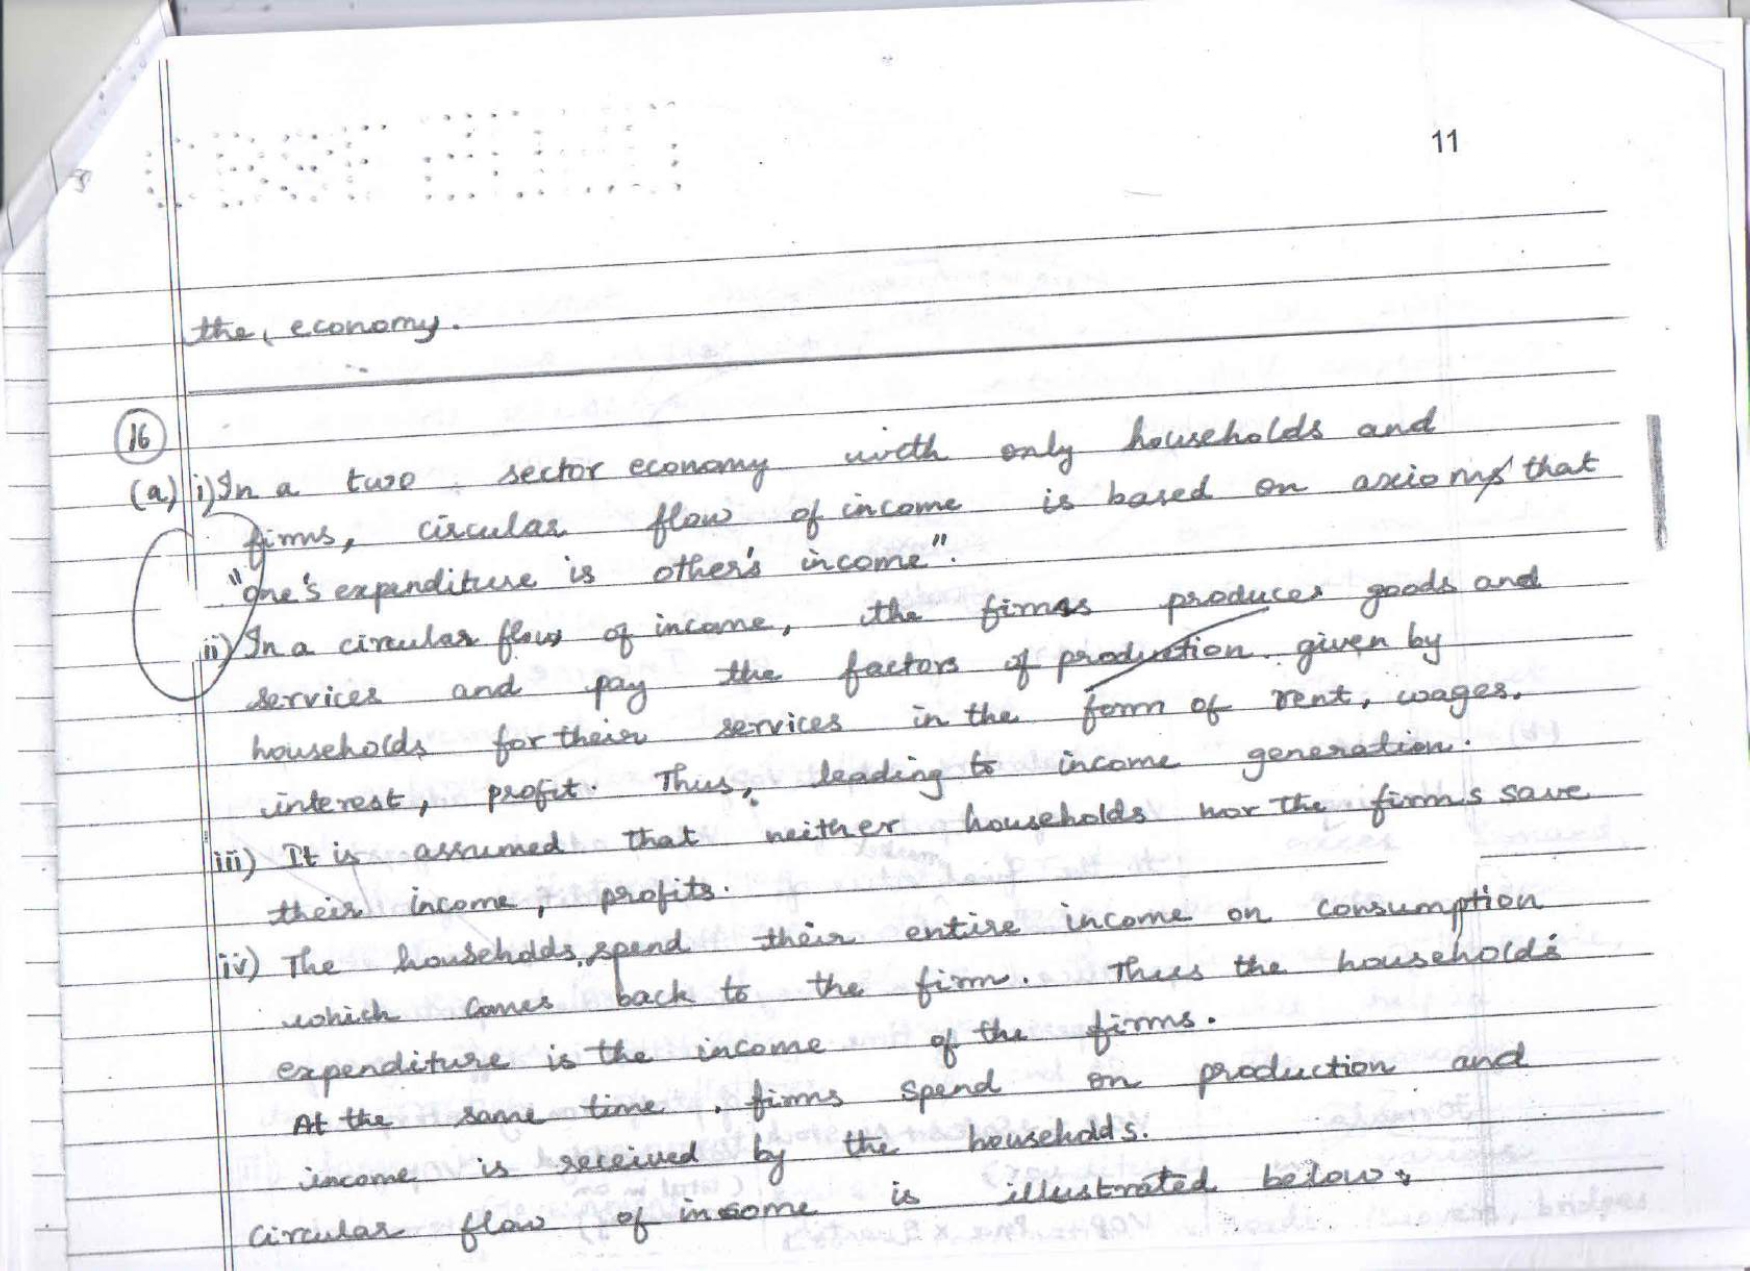 11
the, economy.
16
(a) i) In a two sector economy with only households and
firms, circular flow of income is based on axioms that
"one's expenditure is other's income".
ii) In a circular flow of income, the firms produces goods and
services and pay the factors of production given by
households for their services in the form of rent, wages,
interest, profit. Thus, leading to income generation.
iii) It is assumed that neither households nor the firms save
their income, profits.
iv) The households spend their entire income on consumption
which comes back to the firm. Thus the household's
expenditure is the income of the firms.
At the same time, firms spend on production and
income is received by the households.
Circular flow of income is illustrated below: